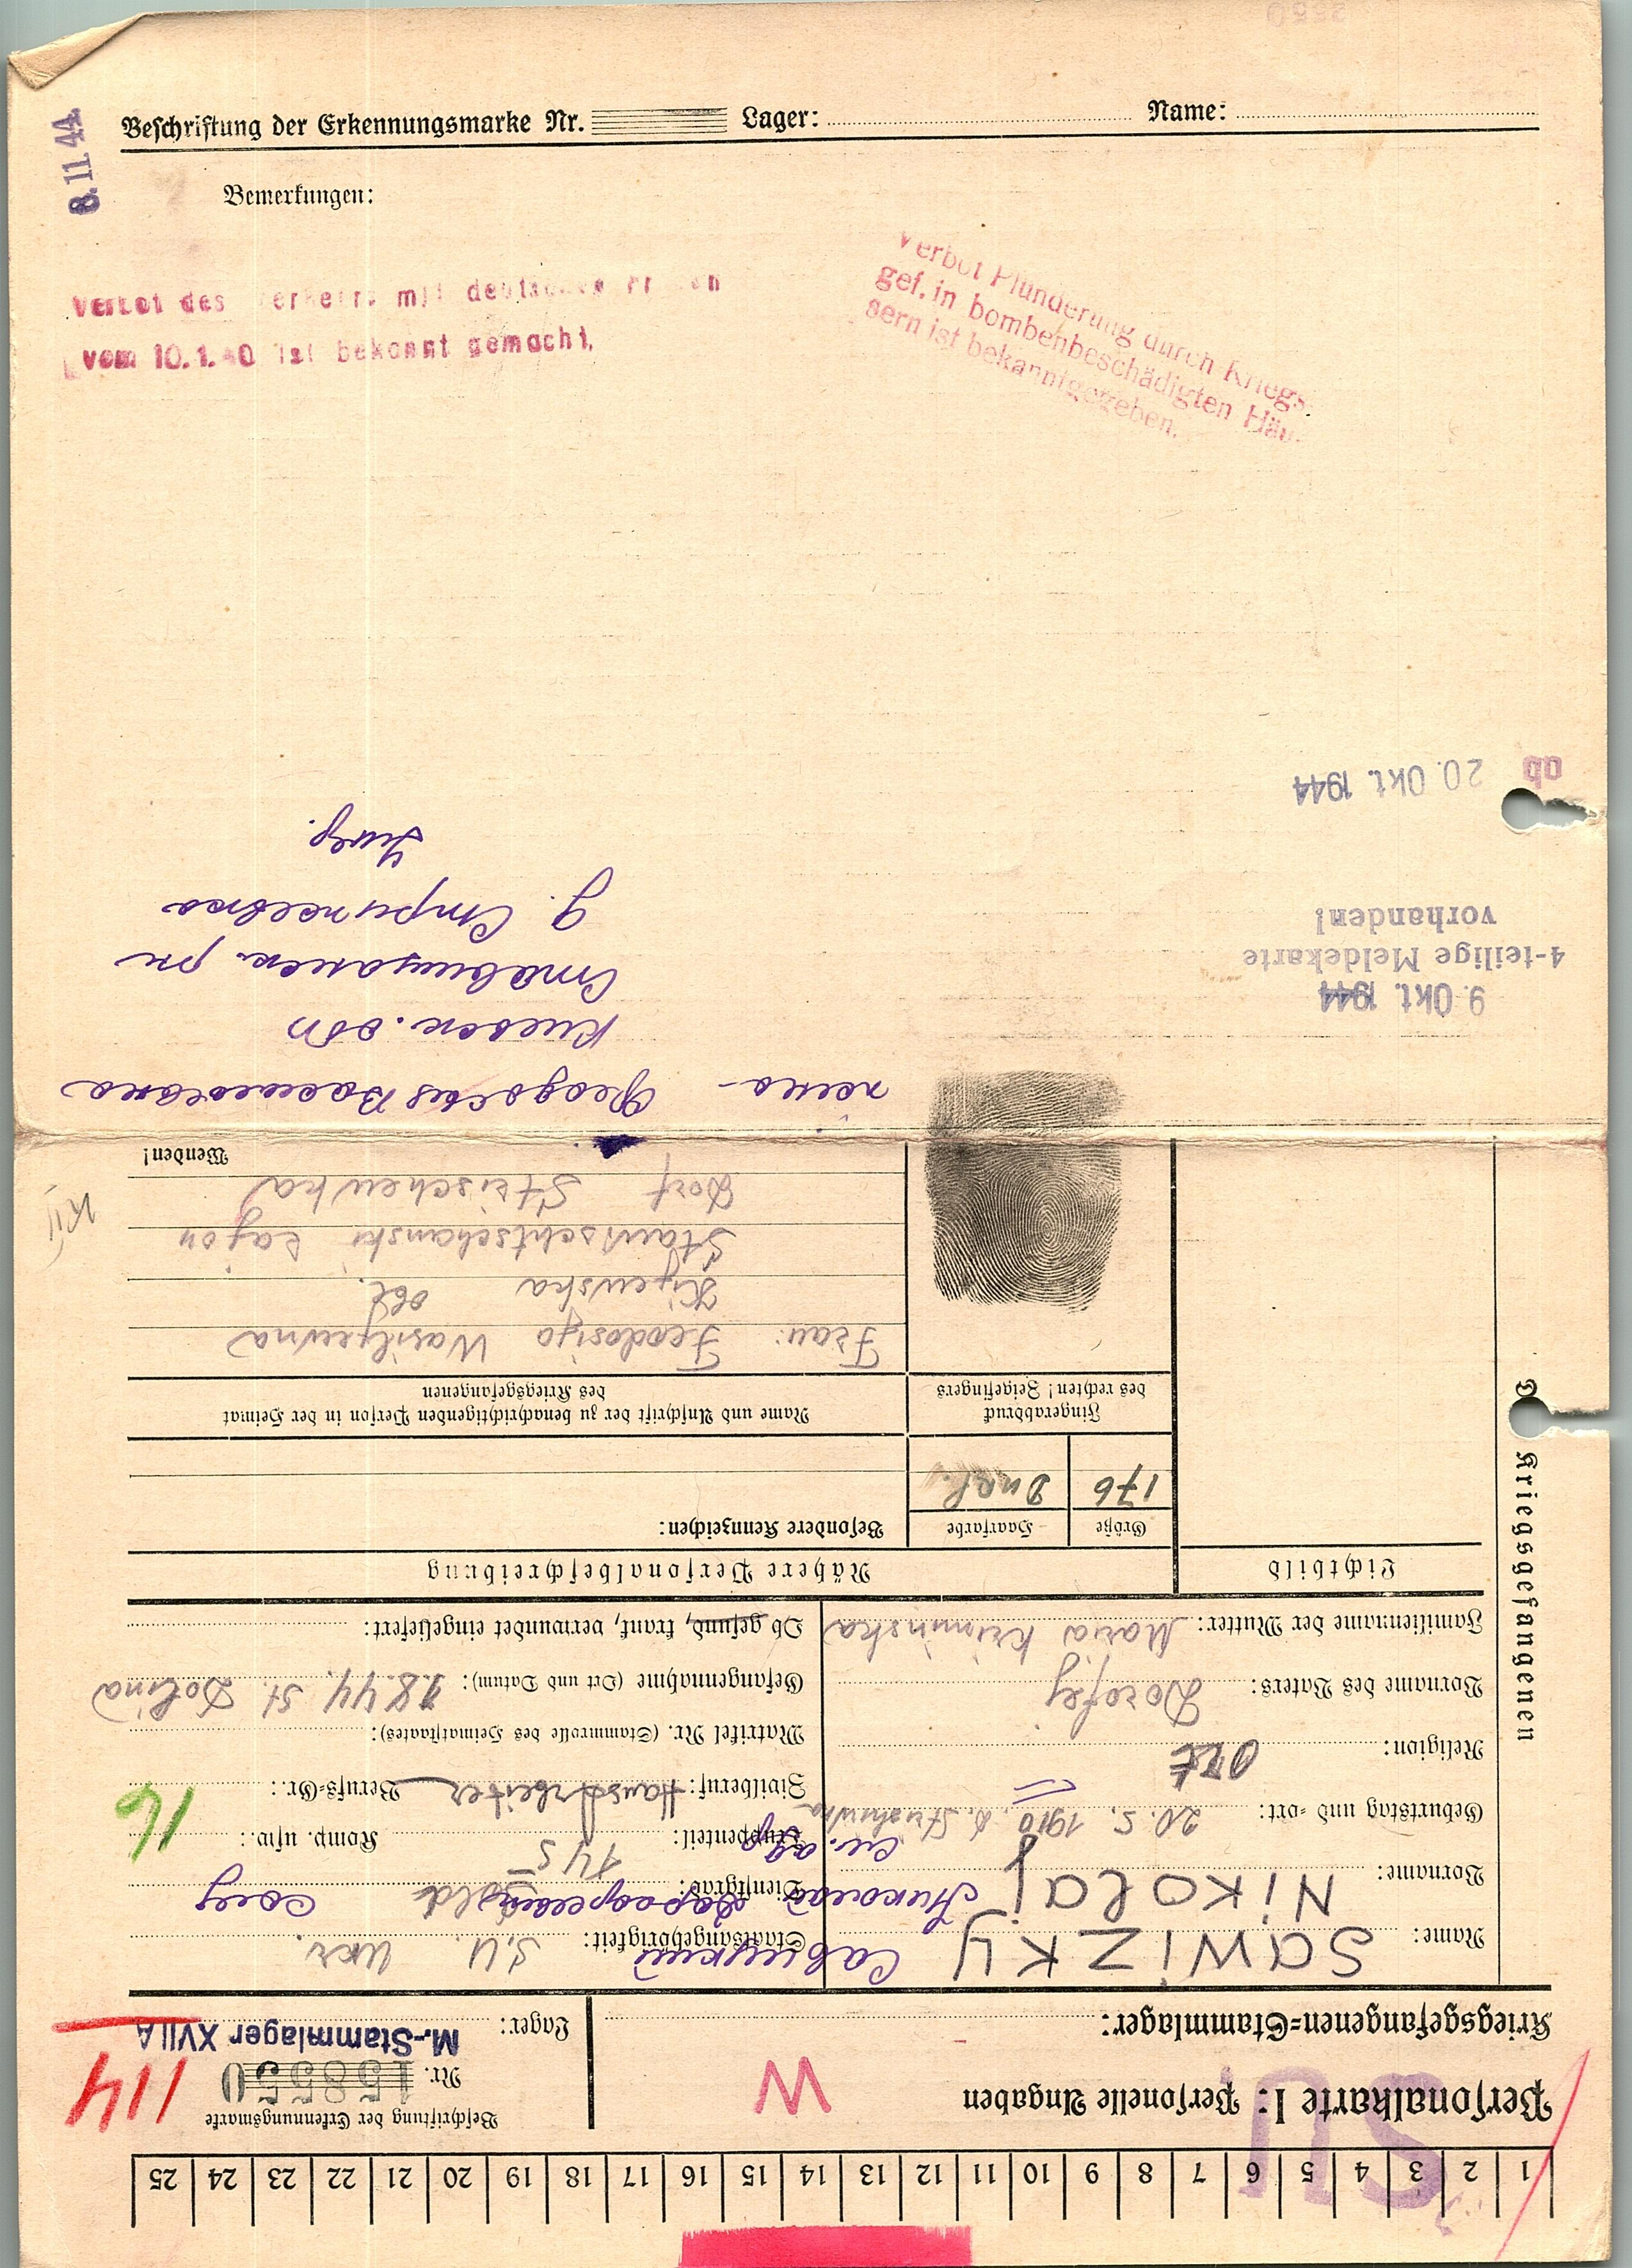 Beschriftung der Erkennungsmarke Nr. Lager: Name:
8.11.44.
Bemerkungen:
Verbot des Verkehrs mit deutschen Frauen
vom 10.1.40 ist bekannt gemacht.
Verbot Plünderung durch Kriegs-
gef. in bombenbeschädigten Häu-
sern ist bekanntgegeben.
1 2 3 4 5 6 7 8 9 10 11 12 13 14 15 16 17 18 19 20 21 22 23 24 25
SU
Personalkarte I: Personelle Angaben
W
Beschriftung der Erkennungsmarke
Nr. 158550
114
Kriegsgefangenen-Stammlager:
Lager: M.-Stammlager XVII A
Des Kriegsgefangenen
Name: SAWIZKY Савицкий
Vorname: Nikolaj Николай
Geburtstag und -ort: 20. 5. 1910
Religion: Ort
Vorname des Vaters: Dorofej
Familienname der Mutter: Maria
Staatsangehörigkeit: S.U. Ukr.
Dienstgrad: Sold.
Truppenteil: Komp. usw.:
Zivilberuf: Hausarbeiter Berufs-Gr.: 16
Matrikel Nr. (Stammrolle des Heimatstaates):
Gefangennahme (Ort und Datum): 1.8.44. St. Dolina
Ob gesund, krank, verwundet eingeliefert:
Lichtbild
Nähere Personalbeschreibung
Größe Haarfarbe Besondere Kennzeichen:
176 Dukl.
Fingerabdruck
des rechten! Zeigefingers
Name und Anschrift der zu benachrichtigenden Person in der Heimat
des Kriegsgefangenen
Frau: Feodosija Wasiljewna
Kijewska obl.
Stawischtschanski rajon
Dorf Strischewka
Wenden!
жена – Феодосия Васильевна
Киевск. обл
Ставищанск. рн
д. Стрижевка
9. Okt. 1944
4-teilige Meldekarte
vorhanden!
ab 20. Okt. 1944